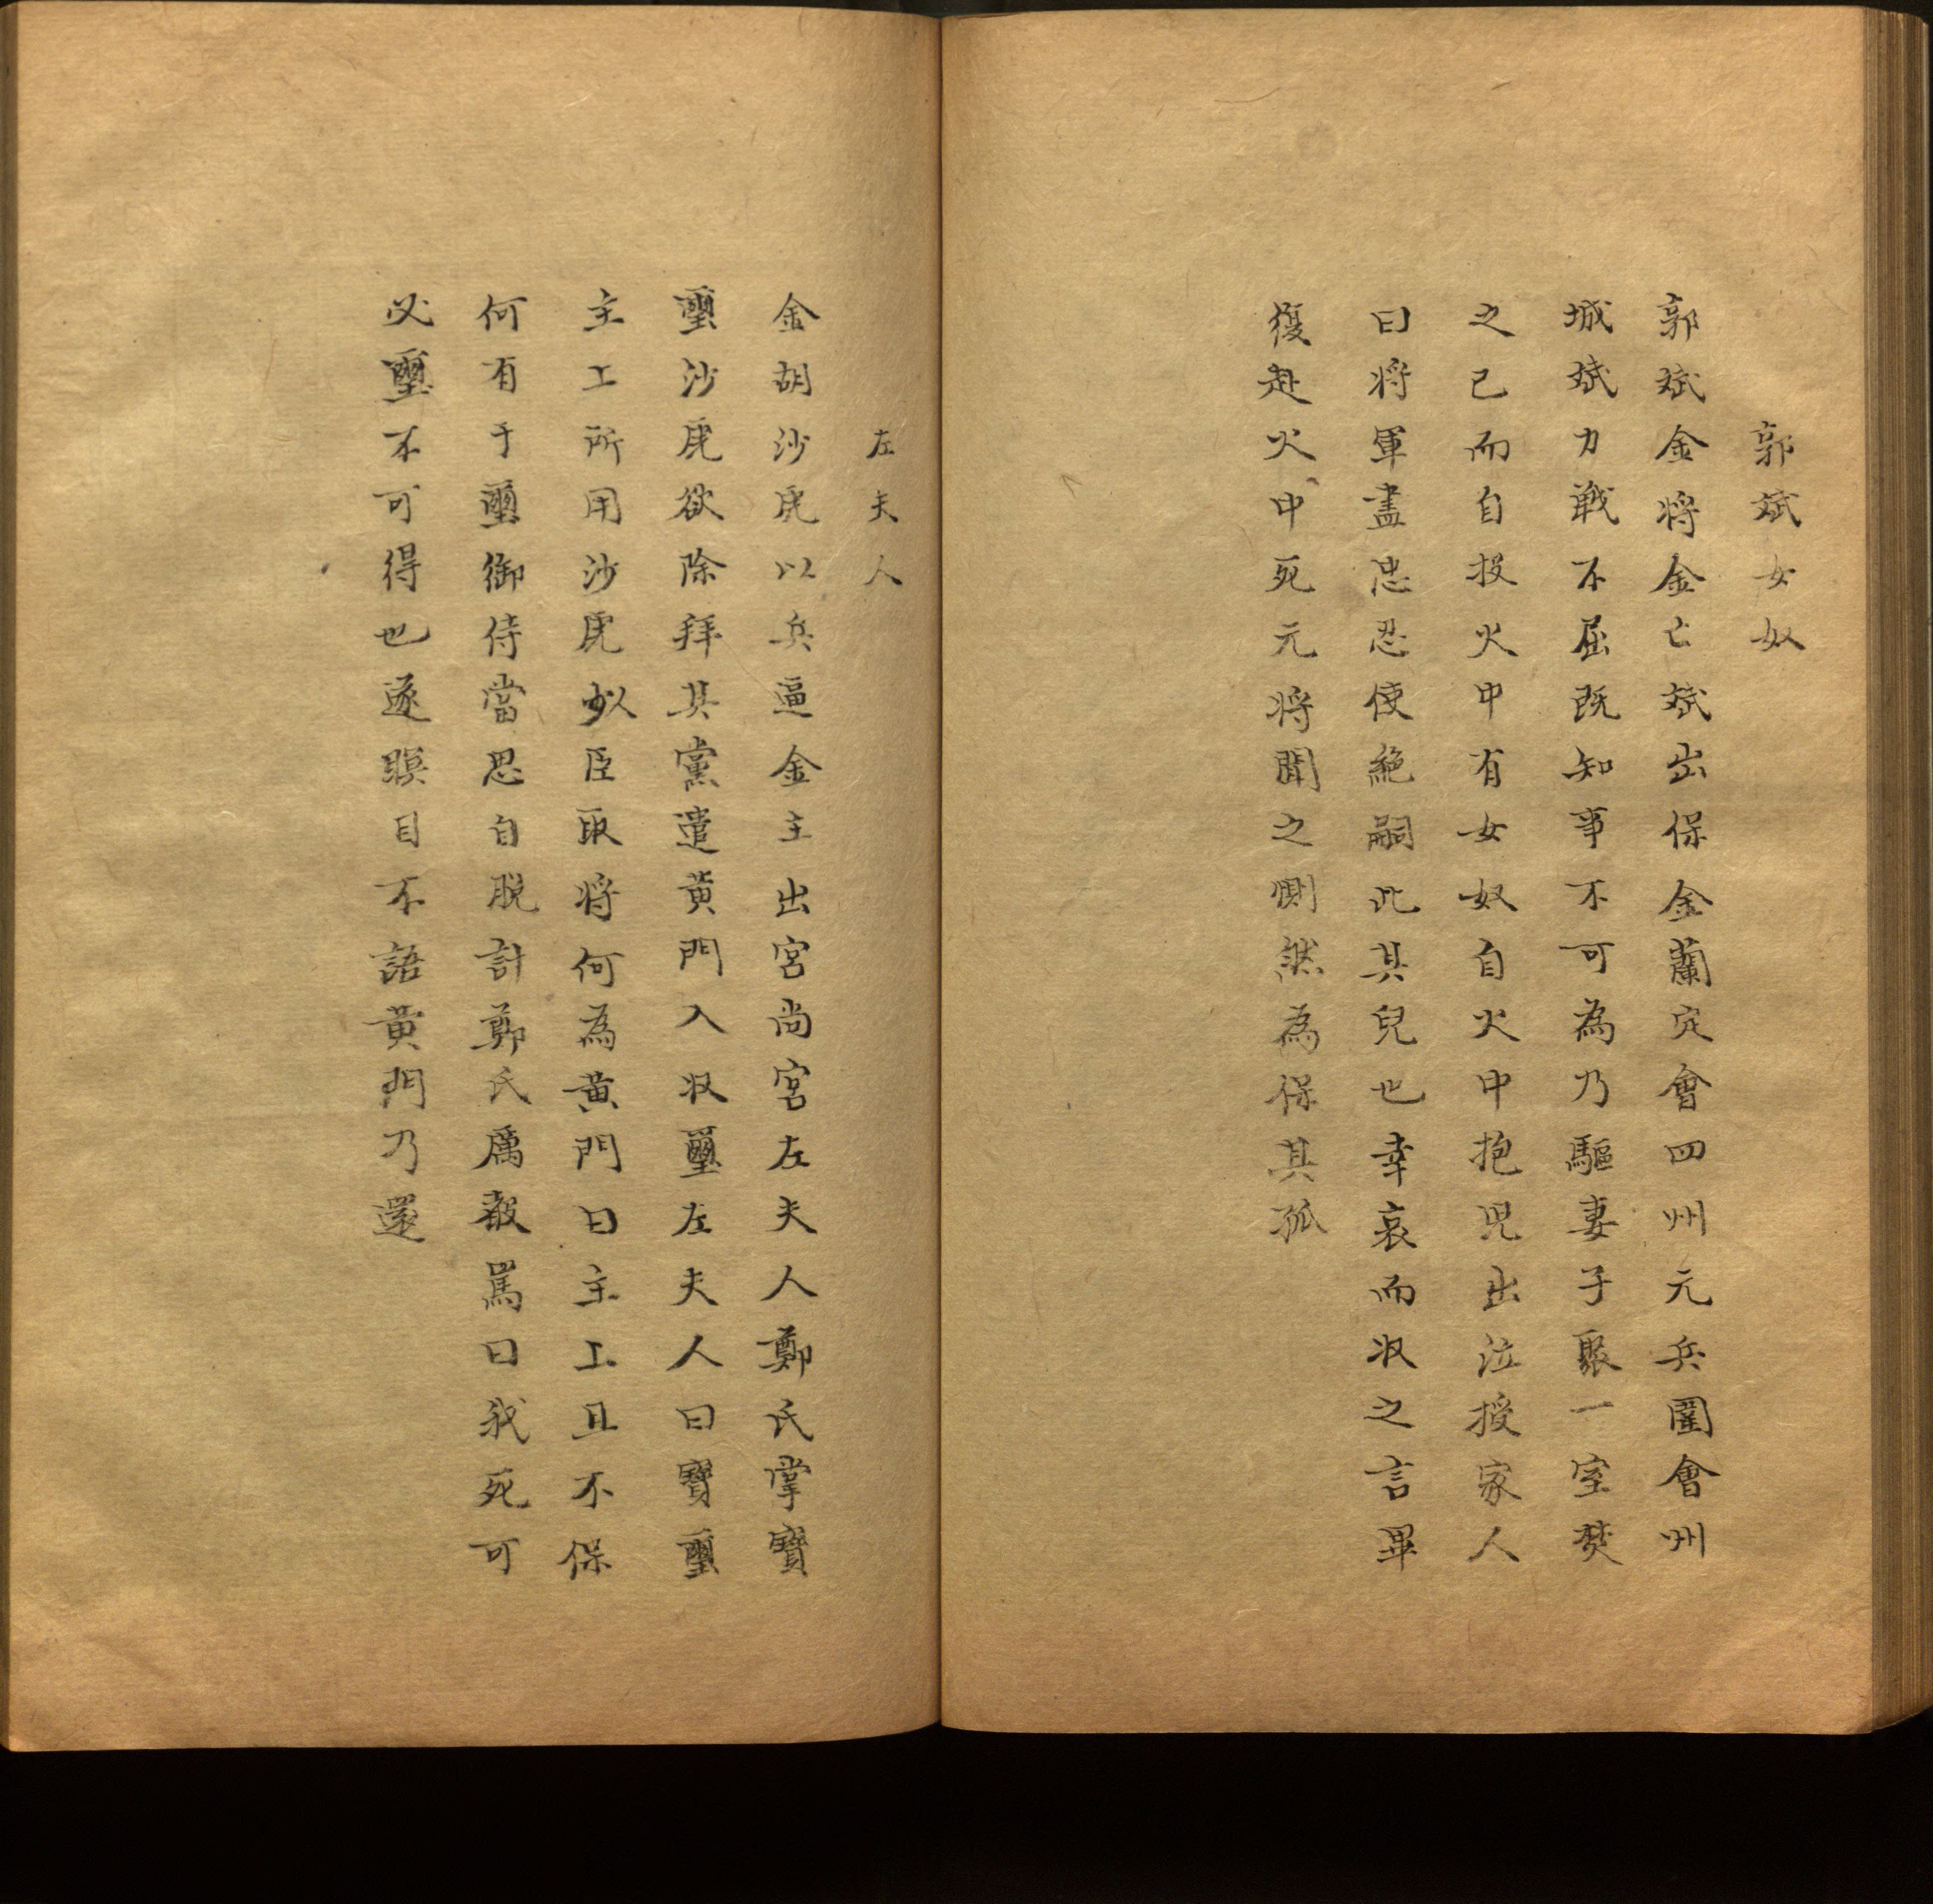 郭斌女奴
郭斌金將金亡斌出保金蘭定會四州元兵圍會州
城斌力戰不屈既知事不可為乃驅妻子聚一室焚
之已而自投火中有女奴自火中抱児出泣授家人
曰將軍盡忠忍使絶嗣此其兒也幸哀而收之言畢
復赴火中死元將聞之惻然為保其孤
左夫人
金胡沙虎以兵逼金主出宮尚宮左夫人鄭氏掌寶
璽沙虎欲除拜其黨遣黄門入收璽左夫人曰寶璽
主上所用沙虎人臣取將何為黄門曰主上且不保
何有于璽御侍當思自脱計鄭氏厲聲罵曰我死可
必璽不可得也遂瞑目不語黄門乃還